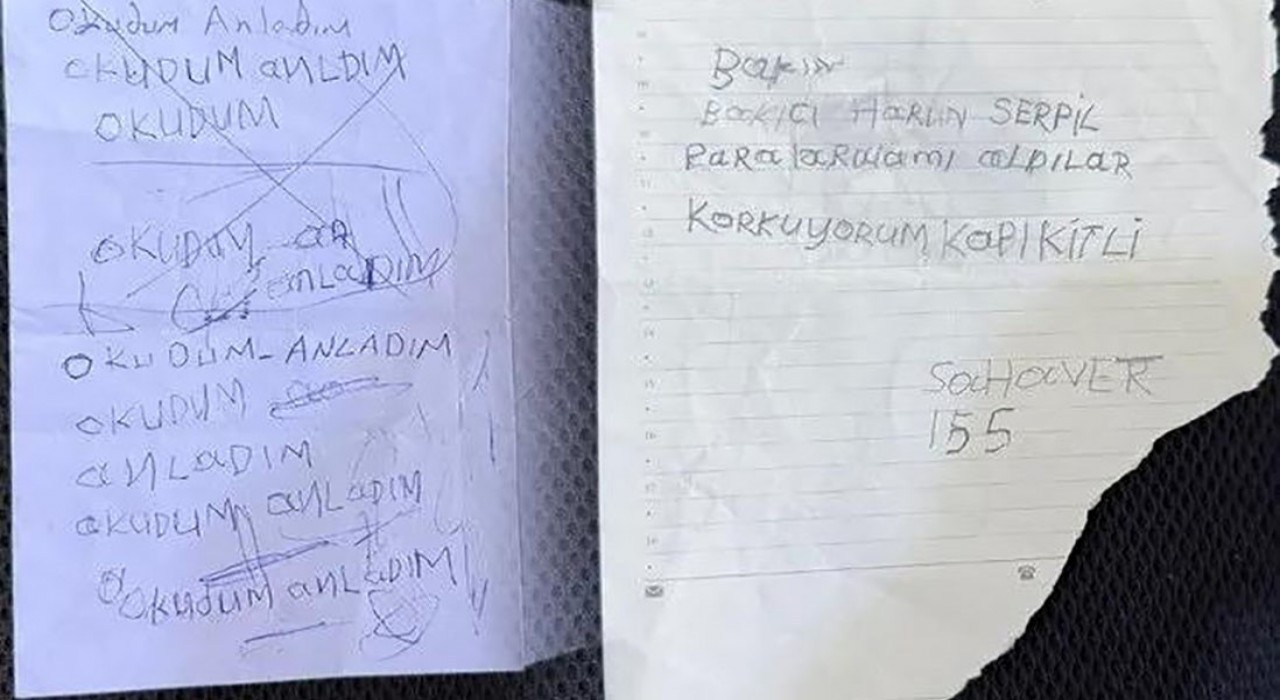 Okudum Anladım
OKUDUM aNLDIM
OKUDUM
OKUDUM
aNLaDIM
OKUDUM-ANLADIM
OKUDUM
aNLaDIM
OKUDUM aNLaDIM
Okudum aNLaDIM
BAKICI HARUN SERPİL
PARalaRımı alDILAR
KORKUYORUM KaPI KİTLİ
SaHaVER
155